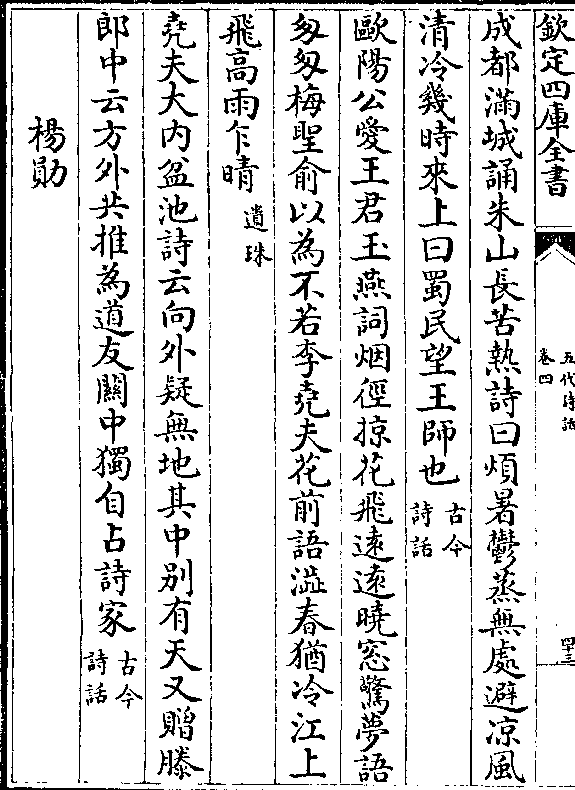 欽定四庫全書
五代詩話
卷四
四十三
成都滿城誦朱山長苦熱詩曰煩暑鬱蒸無處避凉風
清冷幾時來上曰蜀民望王師也古今詩話
歐陽公愛王君玉燕詞烟徑掠花飛遠遠曉窓驚夢語
匆匆梅聖俞以為不若李堯夫花前語澁春猶冷江上
飛高雨乍晴遺珠
堯夫大内盆池詩云向外疑無地其中别有天又贈滕
郎中云方外共推為道友闗中獨自占詩家古今詩話
楊勛